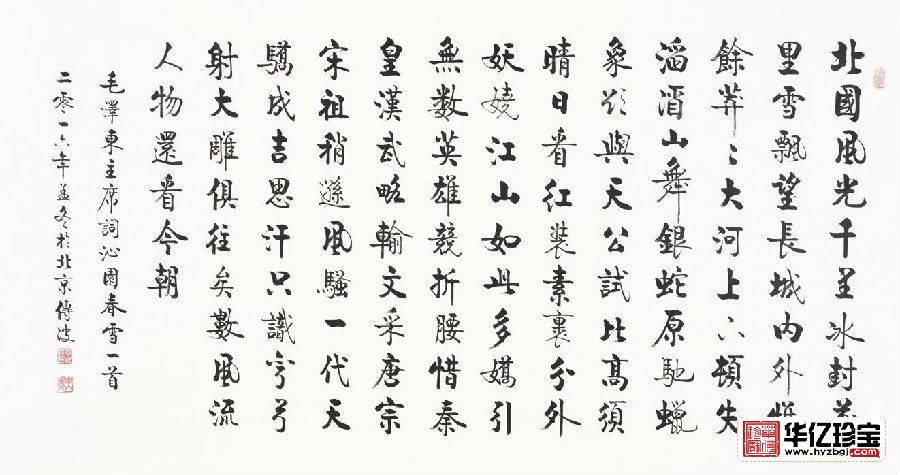 北國風光千里冰封萬
里雪飄望長城内外惟
餘莽〻大河上下頓失
滔滔山舞銀蛇原馳蠟
象欲與天公試比高須
晴日看红裝素裹分外
妖嬈江山如此多嬌引
無數英雄競折腰惜秦
皇漢武略輸文采唐宗
宋祖稍遜風騷一代天
驕成吉思汗只識弯弓
射大雕俱往矣數風流
人物還看今朝
毛澤東主席詞沁園春雪一首
二零一六年孟冬於北京傳波
华亿珍宝
www.hyzbgj.com